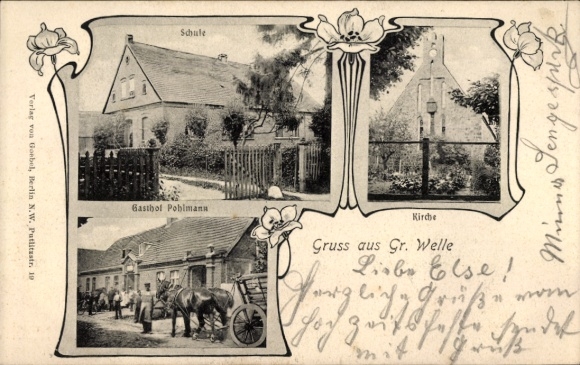 Schule
Gasthof Pohlmann
Kirche
Gruss aus Gr. Welle
Liebe Else!
Herzliche Grüße vom
Hochzeitsfeste sendet
mit Gruß
Verlag von Goebel, Berlin N.W., Putlitzstr. 19